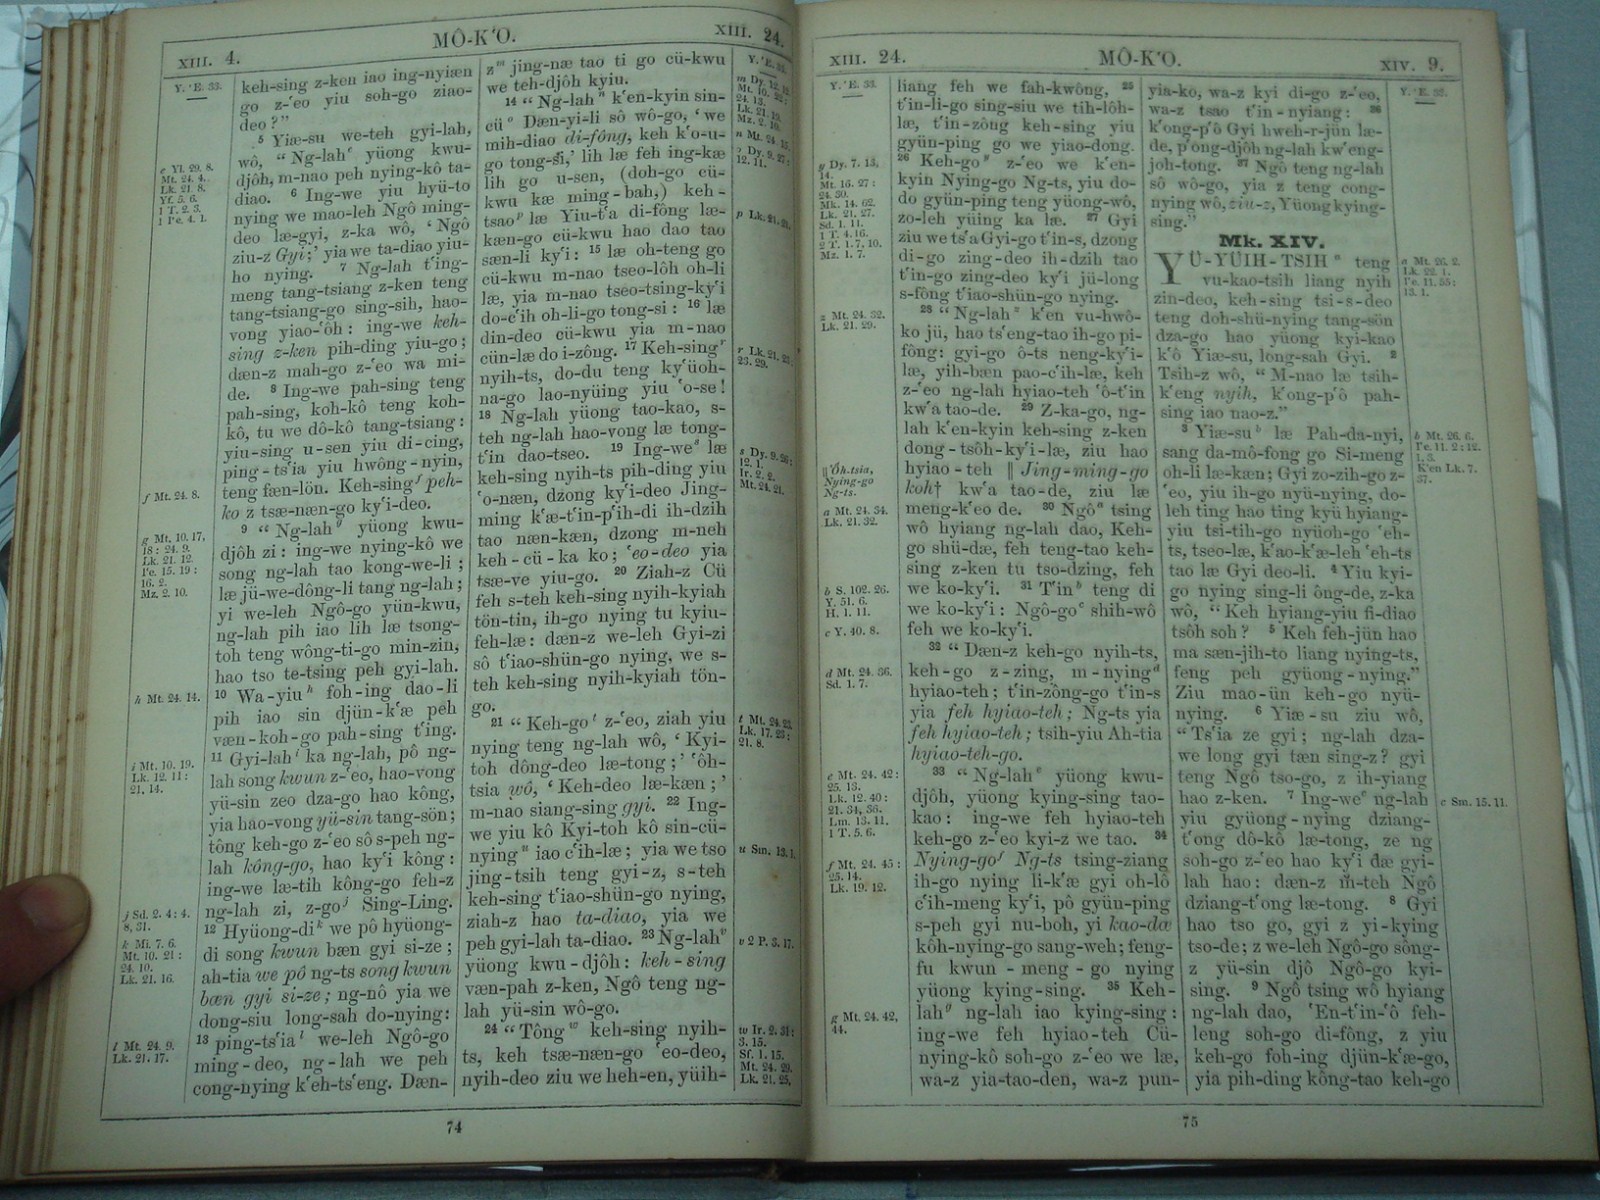 XIII. 4.
MÔ-K‘O.
XIII. 24.
Y. ‘E. 33.
keh-sing z-ken iao ing-nyiæn
go z-‘eo yiu soh-go ziao-
deo?”
⁵ Yiæ-su we-teh gyi-lah,
wô, “Ng-lahᵉ yüong kwu-
djôh, m-nao peh nying-kô ta-
diao. ⁶ Ing-we yiu hyü-to
nying we mao-leh Ngô ming-
deo læ-gyi, z-ka wô, ‘Ngô
ziu-z Gyi;’ yia we ta-diao yiu-
ho nying. ⁷ Ng-lah t‘ing-
meng tang-tsiang z-ken teng
tang-tsiang-go sing-sih, hao-
vong yiao-‘ôh: ing-we keh-
sing z-ken pih-ding yiu-go;
dæn-z mah-go z-‘eo wa mi-
de. ⁸ Ing-we pah-sing teng
pah-sing, koh-kô teng koh-
kô, tu we dô-kô tang-tsiang:
yiu-sing u-sen yiu di-cing,
ping-ts‘ia yiu hwông-nyin,
teng fæn-lön. Keh-singᶠ peh-
ko z tsæ-næn-go ky‘i-deo.
⁹ “Ng-lahᵍ yüong kwu-
djôh zi: ing-we nying-kô we
song ng-lah tao kong-we-li;
læ jü-we-dông-li tang ng-lah;
yi we-leh Ngô-go yün-kwu,
ng-lah pih iao lih læ tsong-
toh teng wông-ti-go min-zin,
hao tso te-tsing peh gyi-lah.
¹⁰ Wa-yiuʰ foh-ing dao-li
pih iao sin djün-k‘æ peh
væn-koh-go pah-sing t‘ing.
¹¹ Gyi-lahⁱ ka ng-lah, pô ng-
lah song kwun z-‘eo, hao-vong
yü-sin zeo dza-go hao kông,
yia hao-vong yü-sin tang-sön;
tông keh-go z-‘eo sô s-peh ng-
lah kông-go, hao ky‘i kông:
ing-we læ-tih kông-go feh-z
ng-lah zi, z-goʲ Sing-Ling.
¹² Hyüong-diᵏ we pô hyüong-
di song kwun bæn gyi si-ze;
ah-tia we pô ng-ts song kwun
bæn gyi si-ze; ng-nô yia we
dong-siu long-sah do-nying:
¹³ ping-ts‘iaˡ we-leh Ngô-go
ming-deo, ng-lah we peh
cong-nying k‘eh-ts‘eng. Dæn-
e Yl. 29. 8.
Mt. 24. 4.
Lk. 21. 8.
Yf. 5. 6.
1 T. 2. 3.
1 Pe. 4. 1.
f Mt. 24. 8.
g Mt. 10. 17,
18: 24. 9.
Lk. 21. 12.
Pe. 15. 19:
16. 2.
Mz. 2. 10.
h Mt. 24. 14.
i Mt. 10. 19.
Lk. 12. 11:
21. 14.
j Sd. 2. 4: 4.
8, 31.
k Mi. 7. 6.
Mt. 10. 21:
24. 10.
Lk. 21. 16.
l Mt. 24. 9.
Lk. 21. 17.
zᵐ jing-næ tao ti go cü-kwu
we teh-djôh kyiu.
¹⁴ “Ng-lahⁿ k‘en-kyin sin-
cüᵒ Dæn-yi-li sô wô-go, ‘we
mih-diao di-fông, keh k‘o-u-
go tong-si,’ lih læ feh ing-kæ
lih go u-sen, (doh-go cü-
kwu kæ ming-bah,) keh-
tsaoᵖ læ Yiu-t‘a di-fông læ-
kæn-go cü-kwu hao dao tao
sæn-li ky‘i: ¹⁵ læ oh-teng go
cü-kwu m-nao tseo-lôh oh-li
læ, yia m-nao tseo-tsing-ky‘i
do-c‘ih oh-li-go tong-si: ¹⁶ læ
din-deo cü-kwu yia m-nao
cün-læ do i-zông. ¹⁷ Keh-singʳ
nyih-ts, do-du teng ky‘üoh-
na-go lao-nyüing yiu ‘o-se!
¹⁸ Ng-lah yüong tao-kao, s-
teh ng-lah hao-vong læ tong-
t‘in dao-tseo. ¹⁹ Ing-weˢ læ
keh-sing nyih-ts pih-ding yiu
‘o-næn, dzong ky‘i-deo Jing-
ming k‘æ-t‘in-p‘ih-di ih-dzih
tao næn-kæn, dzong m-neh
keh-cü-ka ko; ‘eo-deo yia
tsæ-ve yiu-go. ²⁰ Ziah-z Cü
feh s-teh keh-sing nyih-kyiah
tön-tin, ih-go nying tu kyiu-
feh-læ: dæn-z we-leh Gyi-zi
sô t‘iao-shün-go nying, we s-
teh keh-sing nyih-kyiah tön-
go.
²¹ “Keh-goᵗ z-‘eo, ziah yiu
nying teng ng-lah wô, ‘Kyi-
toh dông-deo læ-tong;’ ‘ôh-
tsia wô, ‘Keh-deo læ-kæn;’
m-nao siang-sing gyi. ²² Ing-
we yiu kô Kyi-toh kô sin-cü-
nyingᵘ iao c‘ih-læ; yia we tso
jing-tsih teng gyi-z, s-teh
keh-sing t‘iao-shün-go nying,
ziah-z hao ta-diao, yia we
peh gyi-lah ta-diao. ²³ Ng-lahᵛ
yüong kwu-djôh: keh-sing
væn-pah z-ken, Ngô teng ng-
lah yü-sin wô-go.
²⁴ “Tôngʷ keh-sing nyih-
ts, keh tsæ-næn-go ‘eo-deo,
nyih-deo ziu we heh-en, yüih-
m Dy. 12. 12.
Mt. 10. 22:
24. 13.
Lk. 21. 19.
Mz. 2. 10.
n Mt. 24. 15.
o Dy. 9. 27:
12. 11.
p Lk. 21. 21.
r Lk. 21. 23:
23. 29.
s Dy. 9. 26:
12. 1.
Ir. 2. 2.
Mt. 24. 21.
t Mt. 24. 23.
Lk. 17. 23:
21. 8.
u Sm. 13. 1.
v 2 P. 3. 17.
w Ir. 2. 31:
3. 15.
Sf. 1. 15.
Mt. 24. 29.
Lk. 21. 25.
74
XIII. 24.
MÔ-K‘O.
XIV. 9.
Y. ‘E. 33.
g Dy. 7. 13,
14.
Mt. 16. 27:
24. 30.
Mk. 14. 62.
Lk. 21. 27.
Sd. 1. 11.
1 T. 4. 16.
2 T. 1. 7, 10.
Mz. 1. 7.
z Mt. 24. 32.
Lk. 21. 29.
‖ ‘Ôh-tsia,
Nying-go
Ng-ts.
a Mt. 24. 34.
Lk. 21. 32.
b S. 102. 26.
Y. 51. 6.
H. 1. 11.
c Y. 40. 8.
d Mt. 24. 36.
Sd. 1. 7.
e Mt. 24. 42:
25. 13.
Lk. 12. 40:
21. 34, 36.
Lm. 13. 11.
1 T. 5. 6.
f Mt. 24. 45:
25. 14.
Lk. 19. 12.
g Mt. 24. 42,
44.
liang feh we fah-kwông, ²⁵
t‘in-li-go sing-siu we tih-lôh-
læ, t‘in-zông keh-sing yiu
gyün-ping go we yiao-dong.
²⁶ Keh-goʸ z-‘eo we k‘en-
kyin Nying-go Ng-ts, yiu do-
do gyün-ping teng yüong-wô,
zo-leh yüing ka læ. ²⁷ Gyi
ziu we ts‘a Gyi-go t‘in-s, dzong
di-go zing-deo ih-dzih tao
t‘in-go zing-deo ky‘i jü-long
s-fông t‘iao-shün-go nying.
²⁸ “Ng-lahᶻ k‘en vu-hwô-
ko jü, hao ts‘eng-tao ih-go pi-
fông: gyi-go ô-ts neng-ky‘i-
læ, yih-bæn pao-c‘ih-læ, keh
z-‘eo ng-lah hyiao-teh ‘ô-t‘in
kw‘a tao-de. ²⁹ Z-ka-go, ng-
lah k‘en-kyin keh-sing z-ken
dong-tsôh-ky‘i-læ, ziu hao
hyiao-teh ‖ Jing-ming-go
koh† kw‘a tao-de, ziu læ
meng-k‘eo de. ³⁰ Ngôᵃ tsing
wô hyiang ng-lah dao, Keh-
go shü-dæ, feh teng-tao keh-
sing z-ken tu tso-dzing, feh
we ko-ky‘i. ³¹ T‘inᵇ teng di
we ko-ky‘i: Ngô-goᶜ shih-wô
feh we ko-ky‘i.
³² “Dæn-z keh-go nyih-ts,
keh-go z-zing, m-nyingᵈ
hyiao-teh; t‘in-zông-go t‘in-s
yia feh hyiao-teh; Ng-ts yia
feh hyiao-teh; tsih-yiu Ah-tia
hyiao-teh-go.
³³ “Ng-lahᵉ yüong kwu-
djôh, yüong kying-sing tao-
kao: ing-we feh hyiao-teh
keh-go z-‘eo kyi-z we tao. ³⁴
Nying-goᶠ Ng-ts tsing-ziang
ih-go nying li-k‘æ gyi oh-lô
c‘ih-meng ky‘i, pô gyün-ping
s-peh gyi nu-boh, yi kao-dæ
kôh-nying-go sang-weh; feng-
fu kwun-meng-go nying
yüong kying-sing. ³⁵ Keh-
lahᵍ ng-lah iao kying-sing:
ing-we feh hyiao-teh Cü-
nying-kô soh-go z-‘eo we læ,
wa-z yia-tao-den, wa-z pun-
yia-ko, wa-z kyi di-go z-‘eo,
wa-z tsao t‘in-nyiang: ³⁶
k‘ong-p‘ô Gyi hweh-r-jün læ-
de, p‘ong-djôh ng-lah kw‘eng-
joh-tong. ³⁷ Ngô teng ng-lah
sô wô-go, yia z teng cong-
nying wô, ziu-z, Yüong kying-
sing.”
Mk. XIV.
YÜ-YÜIH-TSIHᵃ teng
vu-kao-tsih liang nyih
zin-deo, keh-sing tsi-s-deo
teng doh-shü-nying tang-sön
dza-go hao yüong kyi-kao
k‘ô Yiæ-su, long-sah Gyi. ²
Tsih-z wô, “M-nao læ tsih-
k‘eng nyih, k‘ong-p‘ô pah-
sing iao nao-z.”
³ Yiæ-suᵇ læ Pah-da-nyi,
sang da-mô-fong go Si-meng
oh-li læ-kæn; Gyi zo-zih-go z-
‘eo, yiu ih-go nyü-nying, do-
leh ting hao ting kyü hyiang-
yiu tsi-tih-go nyüoh-go ‘eh-
ts, tseo-læ, k‘ao-k‘æ-leh ‘eh-ts
tao læ Gyi deo-li. ⁴ Yiu kyi-
go nying sing-li ông-de, z-ka
wô, “Keh hyiang-yiu fi-diao
tsôh soh? ⁵ Keh feh-jün hao
ma sæn-jih-to liang nying-ts,
feng peh gyüong-nying.”
Ziu mao-ün keh-go nyü-
nying. ⁶ Yiæ-su ziu wô,
“Ts‘ia ze gyi; ng-lah dza-
we long gyi tæn sing-z? gyi
teng Ngô tso-go, z ih-yiang
hao z-ken. ⁷ Ing-weᶜ ng-lah
yiu gyüong-nying dziang-
t‘ong dô-kô læ-tong, ze ng
soh-go z-‘eo hao ky‘i dæ gyi-
lah hao: dæn-z m̃-teh Ngô
dziang-t‘ong læ-tong. ⁸ Gyi
hao tso go, gyi z yi-kying
tso-de; z we-leh Ngô-go söng-
z yü-sin djô Ngô-go kyi-
sing. ⁹ Ngô tsing wô hyiang
ng-lah dao, ‘En-t‘in-‘ô feh-
leng soh-go di-fông, z yiu
keh-go foh-ing djün-k‘æ-go,
yia pih-ding kông-tao keh-go
Y. ‘E. 33.
a Mt. 26. 2.
Lk. 22. 1.
Pe. 11. 55:
13. 1.
b Mt. 26. 6.
Pe. 11. 2: 12.
1, 3.
K‘en Lk. 7.
37.
c Sm. 15. 11.
75